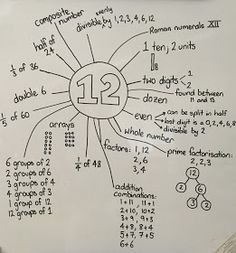 composite
number
evenly
divisible by 1,2,3,4,6,12
Roman numerals XII
half of
24
1 ten, 2 units
1/3 of 36
12
two digits
1
2
double 6
dozen
found between
11 and 13
1/5 of 60
even
can be split in half
last digit is 0,2,4,6,8
divisible by 2
whole number
arrays
factors: 1,12
2,6
3,4
prime factorisation:
2,2,3
12
2
6
2
3
6 groups of 2
2 groups of 6
3 groups of 4
4 groups of 3
1 group of 12
12 groups of 1
1/4 of 48
addition
combinations:
1+11, 11+1
2+10, 10+2
3+9, 9+3
4+8, 8+4
5+7, 7+5
6+6